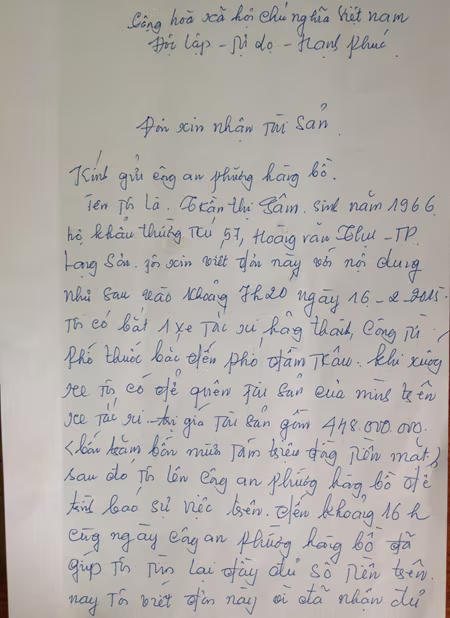 Cộng hoà xã hội chủ nghĩa Việt nam
Độc lập - Tự do - Hạnh phúc
Đơn xin nhận Tài Sản.
Kính gửi công an phường hàng bồ.
Tên Tôi Là. Trần Thị Lâm. sinh năm 1966
hộ khẩu thường Trú, 57, Hoàng văn Thụ - TP.
Lạng Sơn. Tôi xin viết đơn này với nội dung
như sau vào khoảng 7h20 ngày 16 - 2 - 2015.
Tôi có bắt 1 xe Tắc xi hãng thành Công Từ
phố thuốc bắc đến phố Trần. khi xuống
xe Tôi có để quên Tài Sản của mình trên
xe Tắc xi - trị giá Tài Sản gồm 448.000.000.
(bốn trăm bốn mươi Tám triệu đồng Tiền mặt)
sau đó Tôi lên công an phường hàng bồ để
trình báo sự việc trên. đến khoảng 16h
cùng ngày công an phường hàng bồ đã
giúp Tôi Tìm lại đầy đủ số Tiền trên.
nay Tôi viết đơn này vì đã nhận đủ